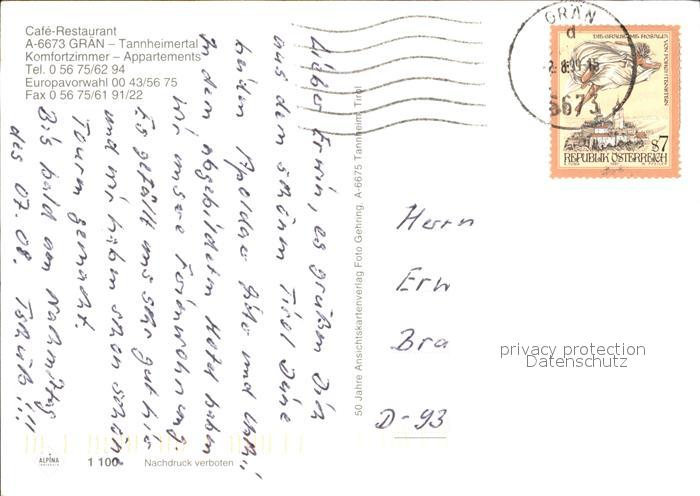 Café-Restaurant
A-6673 GRÄN – Tannheimertal
Komfortzimmer – Appartements
Tel. 0 56 75/62 94
Europavorwahl 00 43/56 75
Fax 0 56 75/61 91/22
Lieber Erwin, es grüßen Dich
aus dem schönen Tirol Deine
beiden Apoldaer
In dem abgebildeten Hotel haben
wir unsere Ferienwohnung
Es gefällt uns sehr gut hier
und wir haben schon schöne
Touren gemacht.
Bis bald am Nachmittag
des 07.08. Tschüß!!!
50 Jahre Ansichtskartenverlag Foto Gehring, A-6675 Tannheim, Tirol
GRÄN
d
6673
DIE GRAUSAME ROSALIE
VON FORCHTENSTEIN
S7
REPUBLIK ÖSTERREICH
Herrn
Erw
Bra
D-93
privacy protection
Datenschutz
ALPINA
1 100
Nachdruck verboten